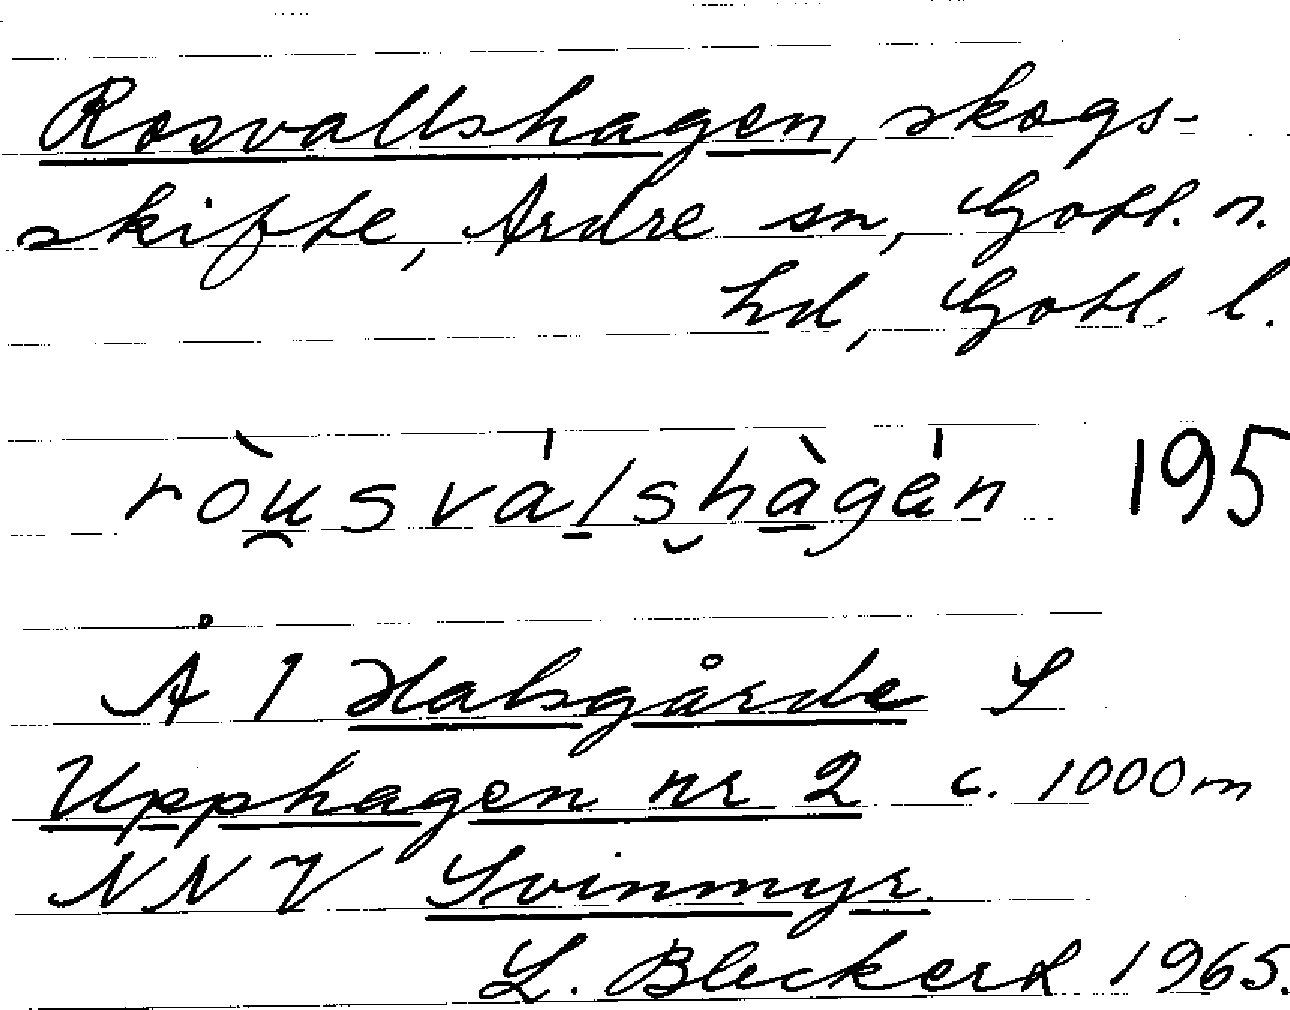 Rosvallshagen, skogs-
skifte, Ardre sn, Gotl. n.
hd, Gotl. l.
ròu̯svál̠s̮hà̠gén 195
Å 1 Halsgårde S
Upphagen nr 2 c. 1000 m
NNV Svinmyr.
L. Bleckert 1965.